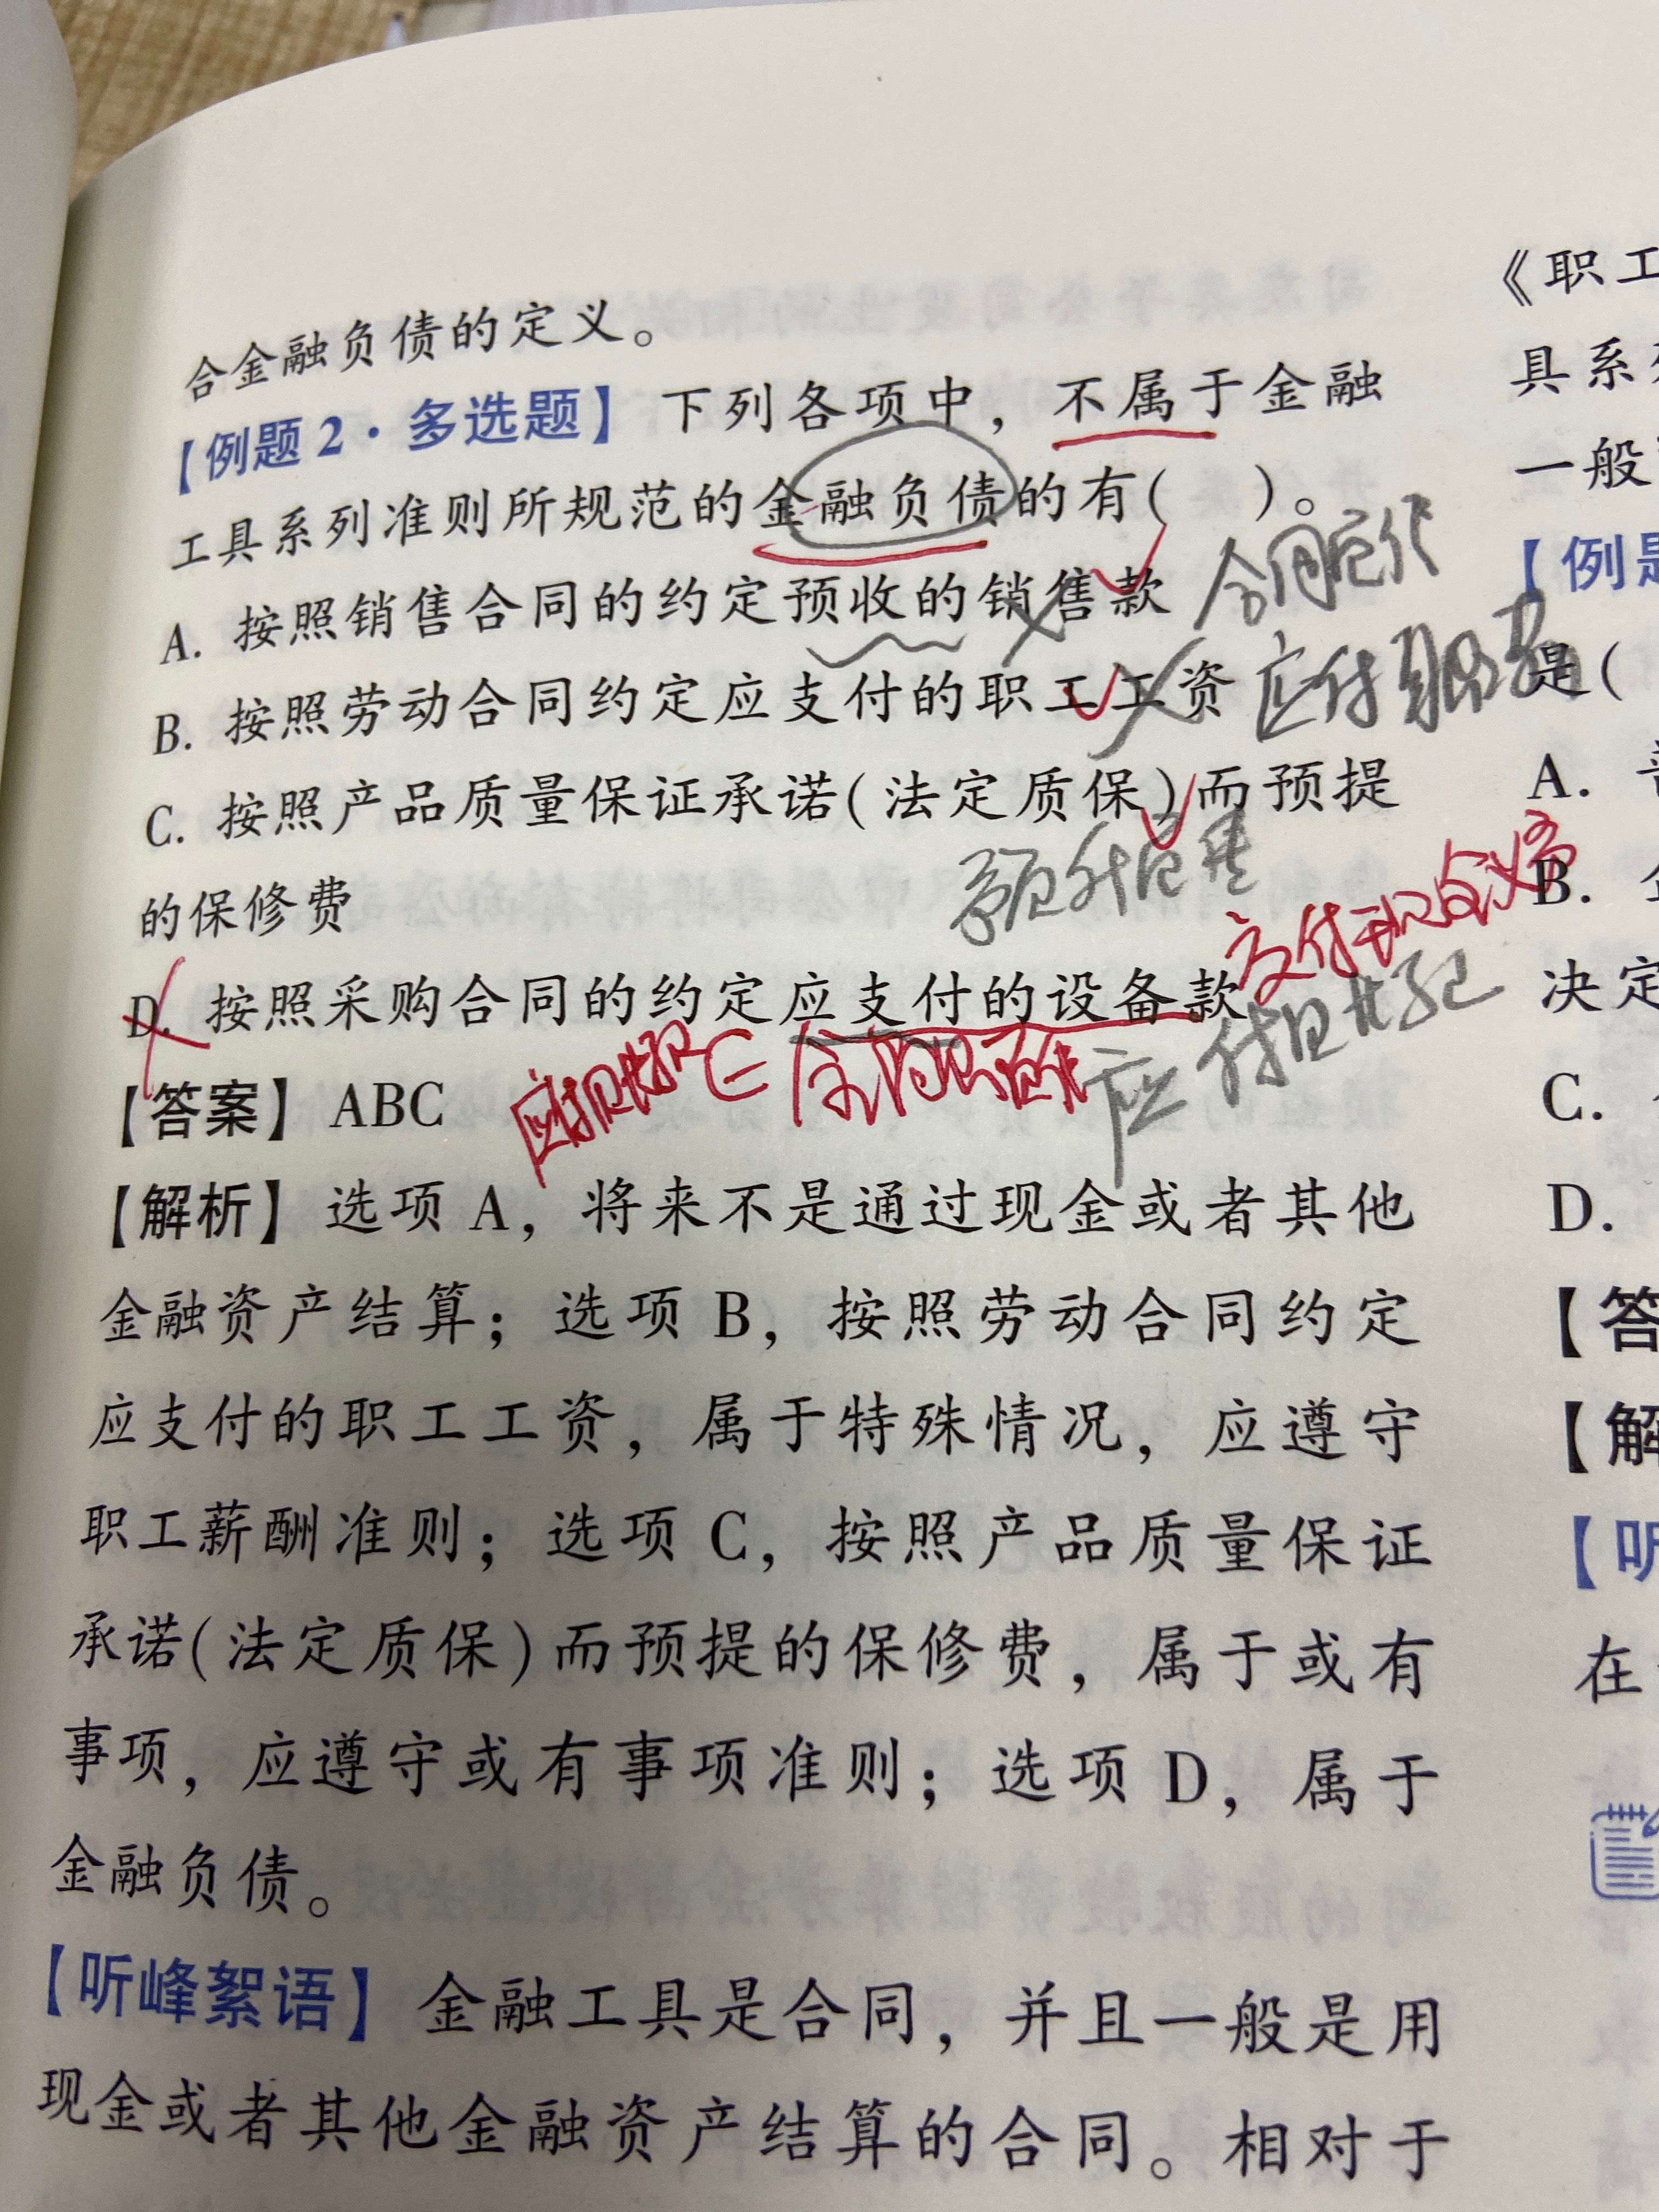 合金融负债的定义。
【例题2·多选题】下列各项中，不属于金融
工具系列准则所规范的金融负债的有(　)。
A. 按照销售合同的约定预收的销售款 合同负债
B. 按照劳动合同约定应支付的职工工资 应付职薪
C. 按照产品质量保证承诺(法定质保)而预提
的保修费 预计负债
D. 按照采购合同的约定应支付的设备款 交付现金义务
应付账款 = 金融负债 应付账款
【答案】ABC
【解析】选项A，将来不是通过现金或者其他
金融资产结算；选项B，按照劳动合同约定
应支付的职工工资，属于特殊情况，应遵守
职工薪酬准则；选项C，按照产品质量保证
承诺(法定质保)而预提的保修费，属于或有
事项，应遵守或有事项准则；选项D，属于
金融负债。
【听峰絮语】金融工具是合同，并且一般是用
现金或者其他金融资产结算的合同。相对于
《职工
具系
一般
【例
是(
A.
B.
决定
C.
D.
【答
【解
【听
在